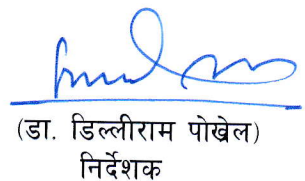 (डा. डिल्लीराम पोखेल)
निर्देशक